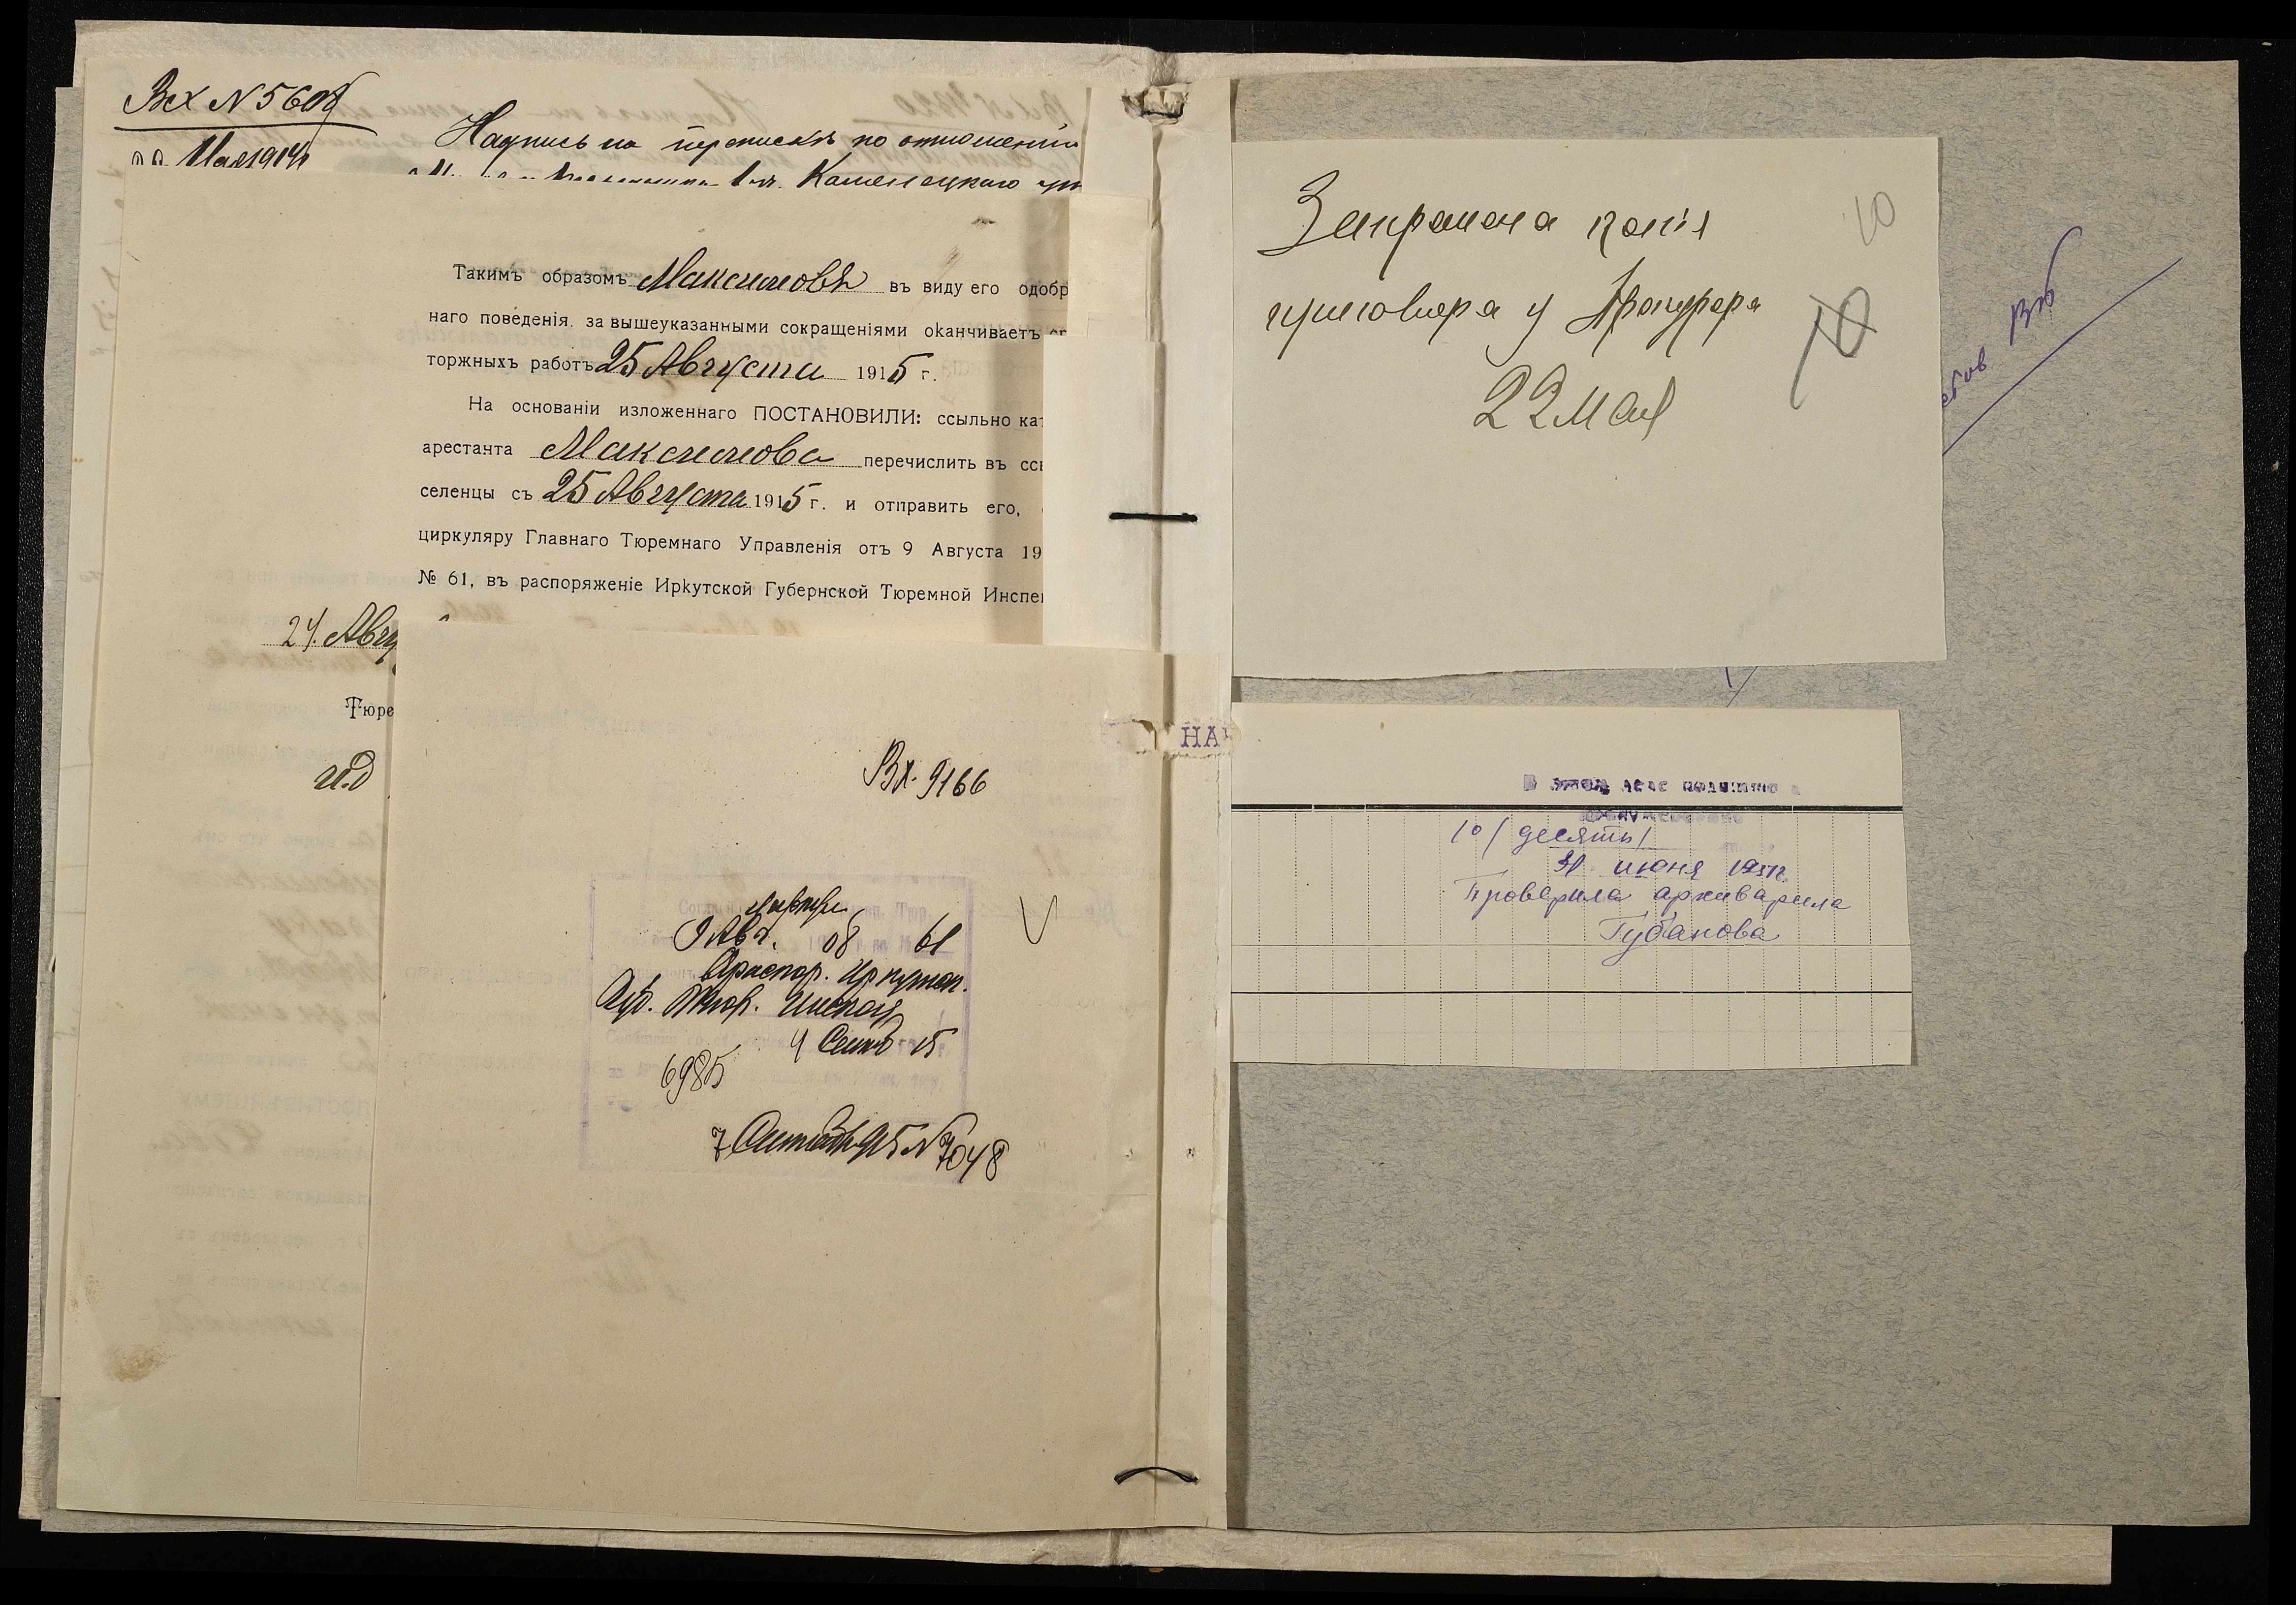 Вх N 5608
Мая 1914
Надпись на перепискѣ по отношенію
Каменецкаго
Такимъ образомъ Максимовъ въ виду его одобр
наго поведенія за вышеуказанными сокращеніями оканчиваетъ
торжныхъ работъ 25 Августа 1915 г.
На основаніи изложеннаго ПОСТАНОВИЛИ: ссыльно кат
арестанта Максимова перечислить въ ссы
селенцы съ 25 Августа 1915 г. и отправить его,
циркуляру Главнаго Тюремнаго Управленія отъ 9 Августа 19
№ 61, въ распоряженіе Иркутской Губернской Тюремной Инспе
24 Авгу
Тюре
и.д
Вх. 9166
9 Авг. 08 61
В распор. Иркутск.
Губ. Тюр. Инспекц
4 Сент 15
6985
7 Сентября 915 N 7048
НАЧ
Запрошена копія
приговора у Прокурора
22 Мая
10
10
10 (десять)
июня
Проверила архивариус
Губанова